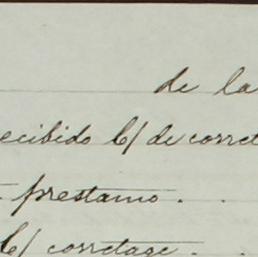 de la
ecibido C/ de corret
prestamo . .
C/ corretaje . .